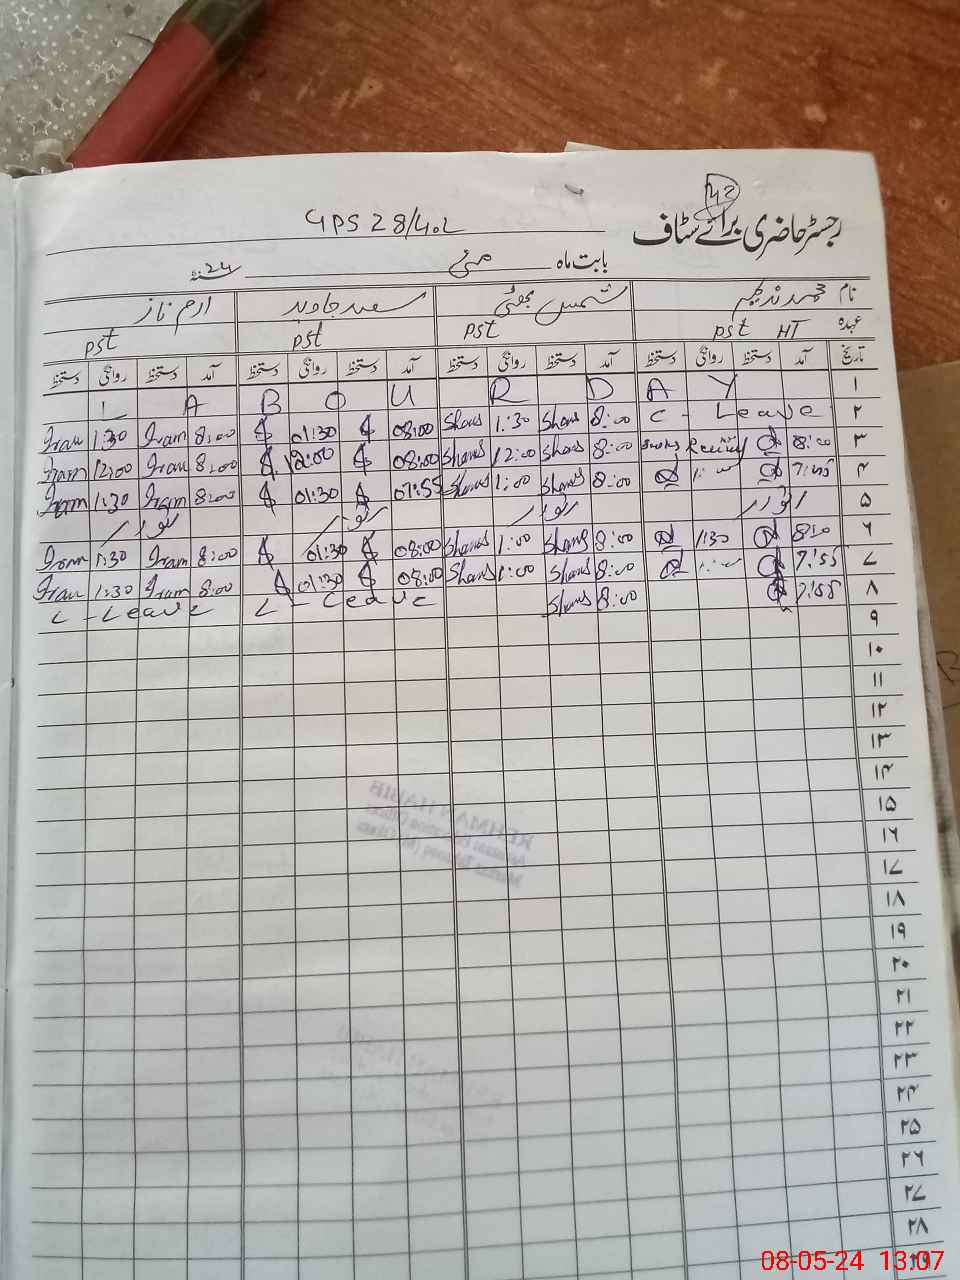 42
GPS 28/4.L
رجسٹر حاضری برائے سٹاف
بابت ماہ مئی سنہ 24
نام محمد ندیم شمس بھٹی سعید جاوید ارم ناز
عہدہ pst HT pst pst pst
تاریخ آمد دستخط روانگی دستخط آمد دستخط روانگی دستخط آمد دستخط روانگی دستخط آمد دستخط روانگی دستخط
L A B O U R D A Y ۱
Iram 1:30 Iram 8:00 01:30 08:00 Shams 1:30 Shams 8:00 C - Leave ۲
Iram 12:00 Iram 8:00 12:00 08:00 Shams 12:00 Shams 8:00 8:00 ۳
Iram 1:30 Iram 8:00 01:30 07:55 Shams 1:00 Shams 8:00 1:00 7:45 ۴
اتوار اتوار اتوار اتوار ۵
Iram 1:30 Iram 8:00 01:30 08:00 Shams 1:00 Shams 8:00 1:30 8:10 ۶
Iram 1:30 Iram 8:00 01:30 08:00 Shams 1:00 Shams 8:00 1:00 7:55 ۷
C - Leave C - Leave Shams 8:00 7:55 ۸
۹
۱۰
۱۱
۱۲
۱۳
۱۴
۱۵
۱۶
۱۷
۱۸
۱۹
۲۰
۲۱
۲۲
۲۳
۲۴
۲۵
۲۶
۲۷
۲۸
۲۹
REHMAN HABIB
08-05-24 13:07